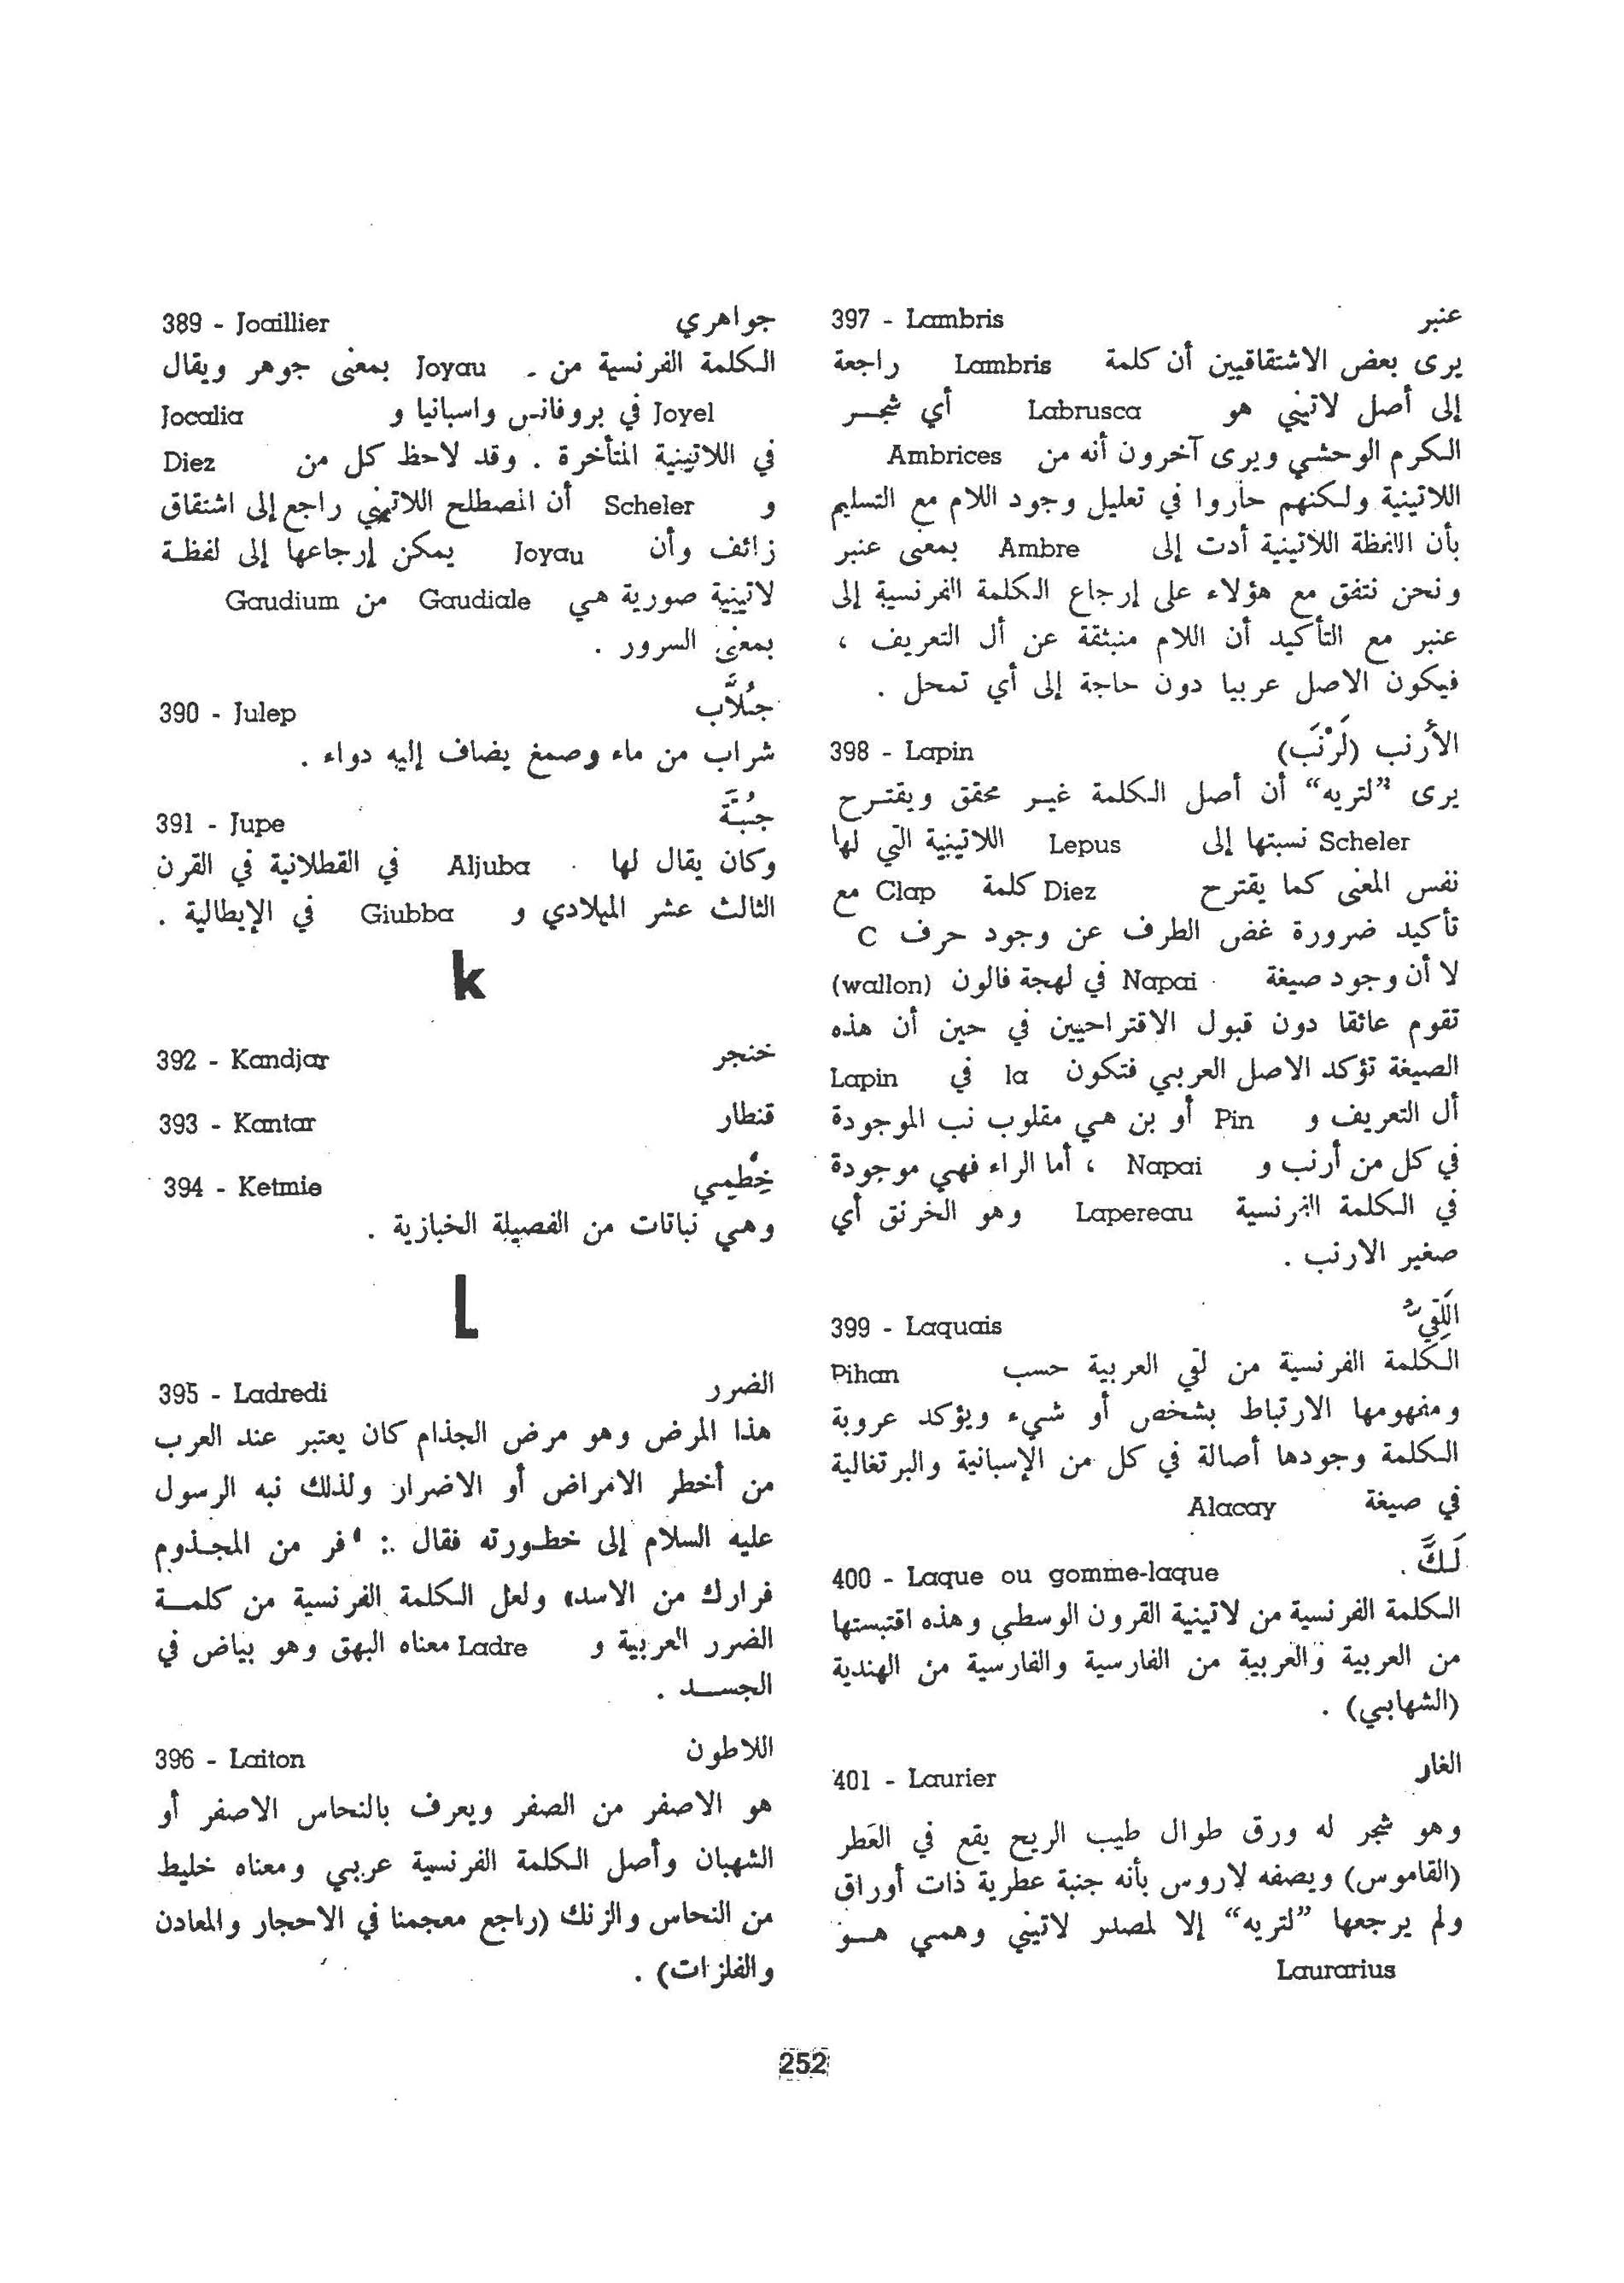 389 - Joaillier جواهري
الكلمة الفرنسية من - Joyau بمعنى جوهر ويقال
Joyel في بروفانس واسبانيا و Jocalia
في اللاتينية المتأخرة . وقد لاحظ كل من Diez
و Scheler أن المصطلح اللاتيني راجع إلى اشتقاق
زائف وأن Joyau يمكن إرجاعها إلى لفظة
لاتينية صورية هي Gaudiale من Gaudium
بمعنى السرور .
390 - Julep جُلاَّب
شراب من ماء وصمغ يضاف إليه دواء .
391 - Jupe جُبَّة
وكان يقال لها Aljuba في القطلانية في القرن
الثالث عشر الميلادي و Giubba في الإيطالية .
k
392 - Kandjar خنجر
393 - Kantar قنطار
394 - Ketmie خِطْمِي
وهي نباتات من الفصيلة الخبازية .
L
395 - Ladredi الضرر
هذا المرض وهو مرض الجذام كان يعتبر عند العرب
من أخطر الامراض أو الاضرار ولذلك نبه الرسول
عليه السلام إلى خطورته فقال : «فر من المجذوم
فرارك من الاسد» ولعل الكلمة الفرنسية من كلمة
الضرر العربية و Ladre معناه البهق وهو بياض في
الجسد .
396 - Laiton اللاطون
هو الاصفر من الصفر ويعرف بالنحاس الاصفر أو
الشهبان وأصل الكلمة الفرنسية عربي ومعناه خليط
من النحاس والزنك (راجع معجمنا في الاحجار والمعادن
والفلزات) .
397 - Lambris عنبر
يرى بعض الاشتقاقيين أن كلمة Lambris راجعة
إلى أصل لاتيني هو Labrusca أي شجر
الكرم الوحشي ويرى آخرون أنه من Ambrices
اللاتينية ولكنهم حاروا في تعليل وجود اللام مع التسليم
بأن اللفظة اللاتينية أدت إلى Ambre بمعنى عنبر
ونحن نتفق مع هؤلاء على إرجاع الكلمة الفرنسية إلى
عنبر مع التأكيد أن اللام منبثقة عن أل التعريف ،
فيكون الاصل عربيا دون حاجة إلى أي تمحل .
398 - Lapin الأرنب (لَرْنَب)
يرى ”لتريه“ أن أصل الكلمة غير محقق ويقترح
Scheler نسبتها إلى Lepus اللاتينية التي لها
نفس المعنى كما يقترح Diez كلمة Clap مع
تأكيد ضرورة غض الطرف عن وجود حرف C
لا أن وجود صيغة Napai في لهجة فالون (wallon)
تقوم عائقا دون قبول الاقتراحيين في حين أن هذه
الصيغة تؤكد الاصل العربي فتكون la في Lapin
أل التعريف و Pin أو بن هي مقلوب نب الموجودة
في كل من أرنب و Napai ، أما الراء فهي موجودة
في الكلمة الفرنسية Lapereau وهو الخرنق أي
صغير الارنب .
399 - Laquais اللَقِيُّ
الكلمة الفرنسية من لقي العربية حسب Pihan
ومفهومها الارتباط بشخص أو شيء ويؤكد عروبة
الكلمة وجودها أصالة في كل من الإسبانية والبرتغالية
في صيغة Alacay
400 - Laque ou gomme-laque لَكَّ .
الكلمة الفرنسية من لاتينية القرون الوسطى وهذه اقتبستها
من العربية والعربية من الفارسية والفارسية من الهندية
(الشهابي) .
401 - Laurier الغار
وهو شجر له ورق طوال طيب الريح يقع في العَطر
(القاموس) ويصفه لاروس بأنه جنبة عطرية ذات أوراق
ولم يرجعها ”لتريه“ إلا لمصدر لاتيني وهمي هو
Laurarius
252